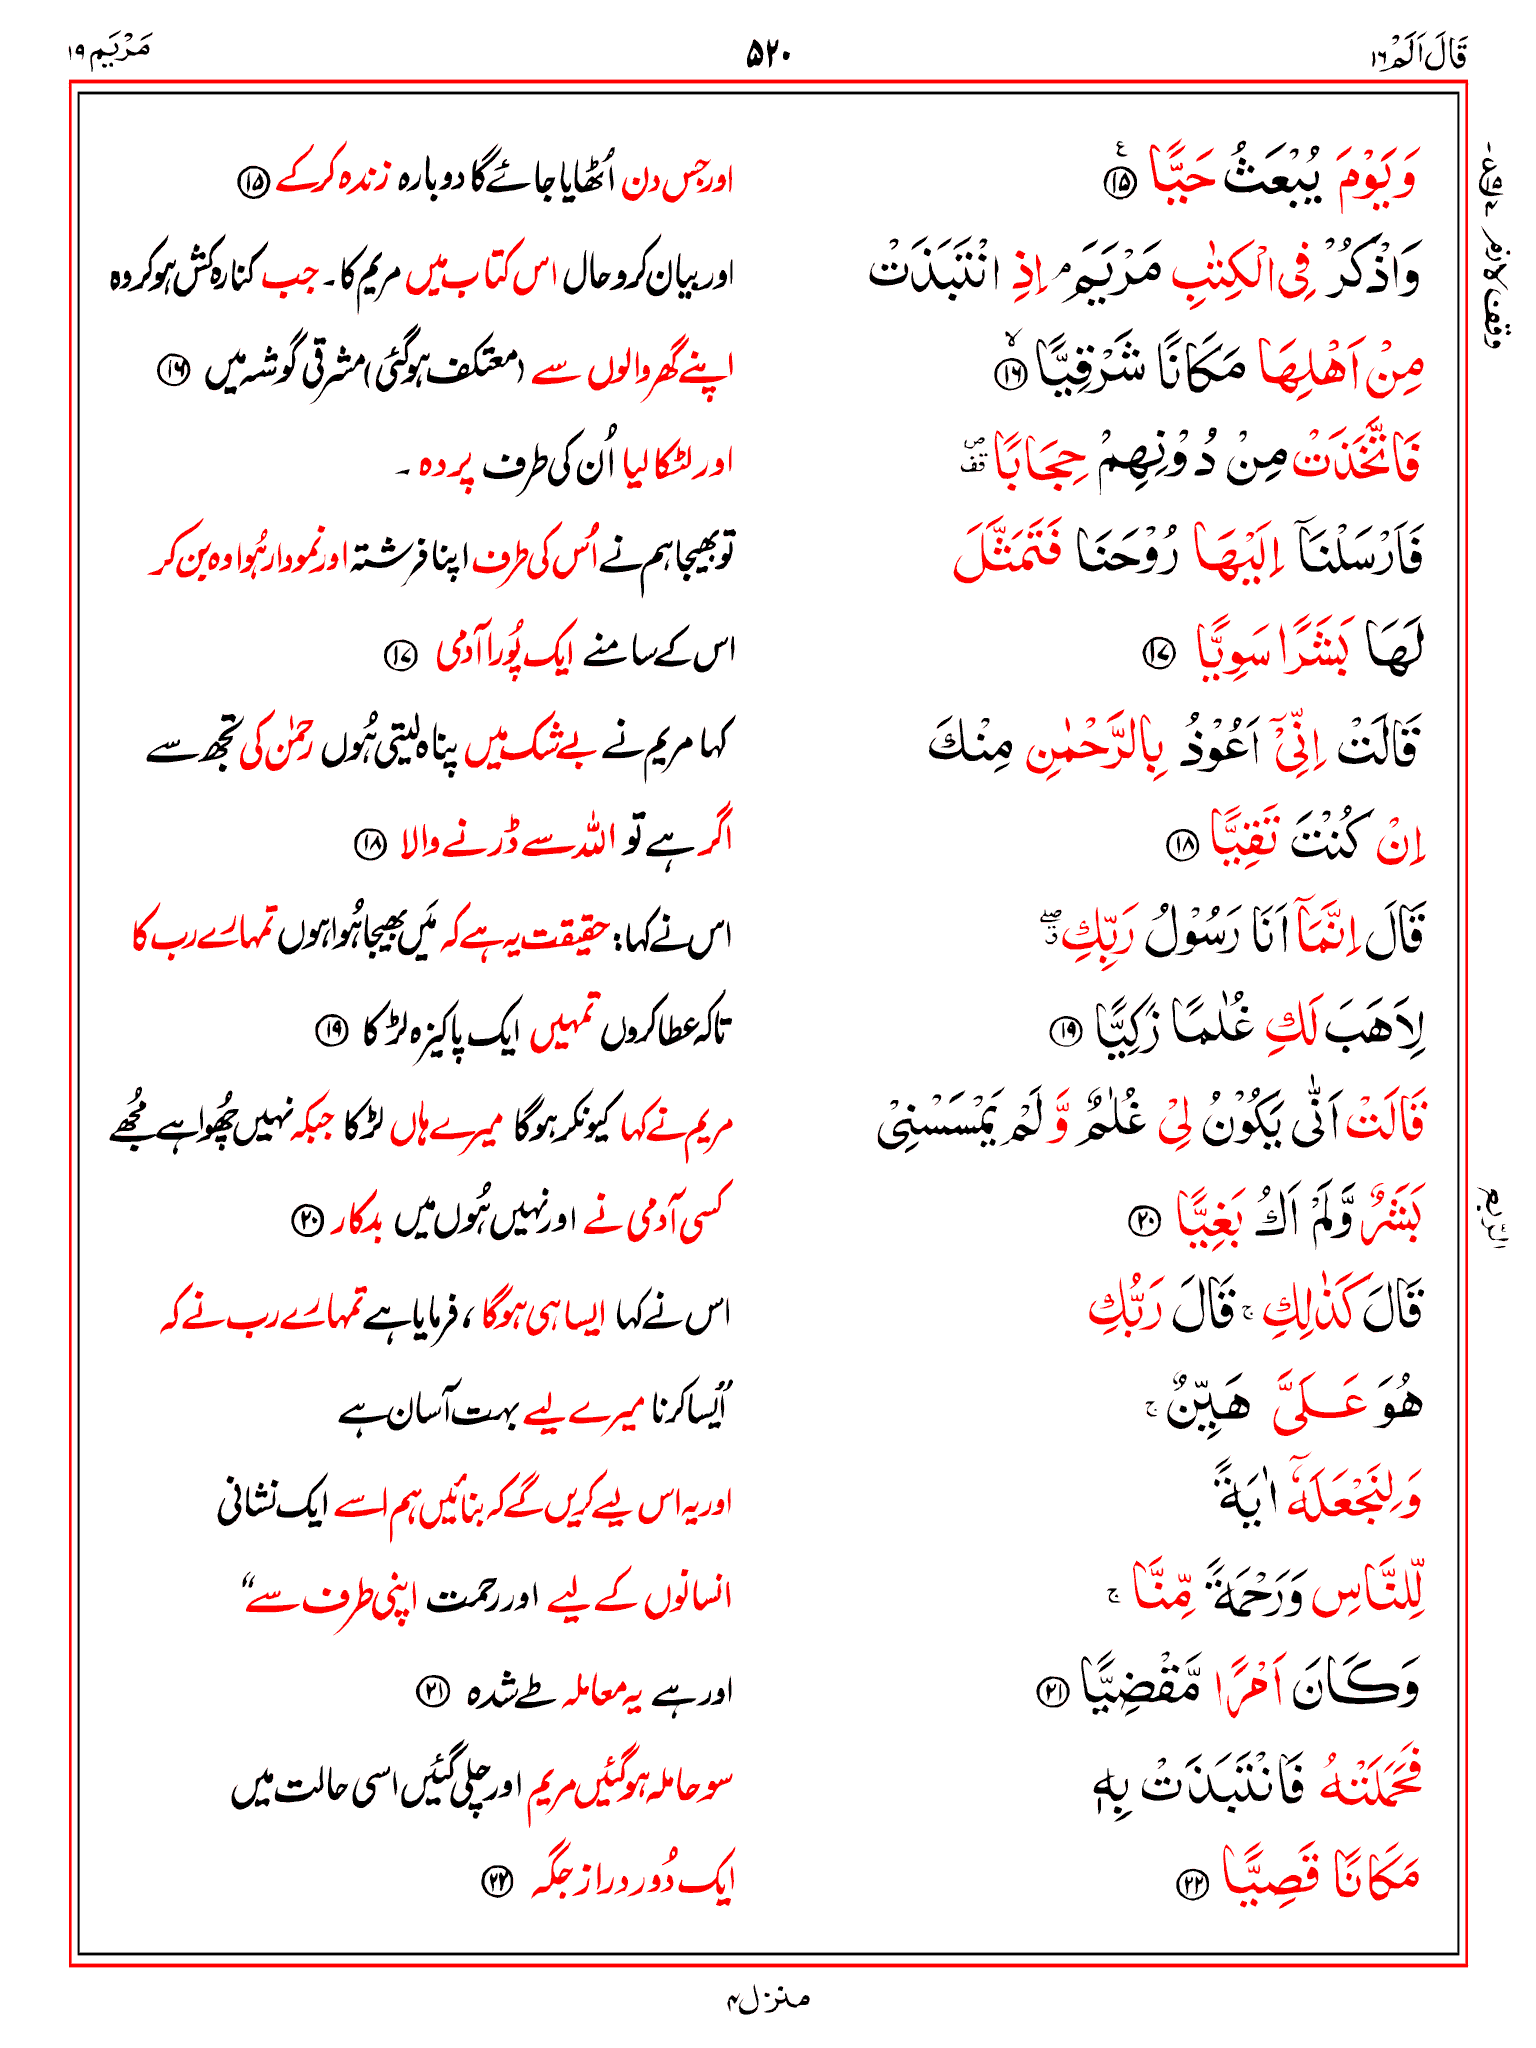 قَالَ اَلَمْ ١٦
۵۲۰
مَرْيَم ١٩
وَيَوْمَ يُبْعَثُ حَيًّا ۧ ⑮
اور جس دن اُٹھایا جائے گا دوبارہ زندہ کر کے ⑮
وَاذْكُرْ فِي الْكِتٰبِ مَرْيَمَ ۘ اِذِ انْتَبَذَتْ
اور بیان کرو حال اس کتاب میں مریم کا۔ جب کنارہ کش ہو کر وہ
مِنْ اَهْلِهَا مَكَانًا شَرْقِيًّا ۙ ⑯
اپنے گھر والوں سے (معتکف ہو گئی) مشرقی گوشہ میں ⑯
فَاتَّخَذَتْ مِنْ دُوْنِهِمْ حِجَابًا ۖ قف
اور لٹکا لیا اُن کی طرف پردہ ۔
فَاَرْسَلْنَآ اِلَيْهَا رُوْحَنَا فَتَمَثَّلَ
تو بھیجا ہم نے اُس کی طرف اپنا فرشتہ اور نمودار ہُوا وہ بن کر
لَهَا بَشَرًا سَوِيًّا ⑰
اس کے سامنے ایک پُورا آدمی ⑰
قَالَتْ اِنِّيْٓ اَعُوْذُ بِالرَّحْمٰنِ مِنْكَ
کہا مریم نے بے شک میں پناہ لیتی ہُوں رحمٰن کی تجھ سے
اِنْ كُنْتَ تَقِيًّا ⑱
اگر ہے تو اللہ سے ڈرنے والا ⑱
قَالَ اِنَّمَآ اَنَا رَسُوْلُ رَبِّكِ ۖ ق
اس نے کہا: حقیقت یہ ہے کہ مَیں بھیجا ہُوا ہوں تمہارے رب کا
لِاَهَبَ لَكِ غُلٰمًا زَكِيًّا ⑲
تاکہ عطا کروں تمہیں ایک پاکیزہ لڑکا ⑲
قَالَتْ اَنّٰى يَكُوْنُ لِيْ غُلٰمٌ وَّ لَمْ يَمْسَسْنِيْ
مریم نے کہا کیونکر ہوگا میرے ہاں لڑکا جبکہ نہیں چُھوا ہے مُجھے
بَشَرٌ وَّلَمْ اَكُ بَغِيًّا ⑳
کسی آدمی نے اور نہیں ہُوں میں بدکار ⑳
قَالَ كَذٰلِكِ ۚ قَالَ رَبُّكِ
اس نے کہا ایسا ہی ہوگا ، فرمایا ہے تمہارے رب نے کہ
هُوَ عَلَىَّ هَيِّنٌ ۚ
"اَیسا کرنا میرے لیے بہت آسان ہے
وَلِنَجْعَلَهٗٓ اٰيَةً
اور یہ اس لیے کریں گے کہ بنائیں ہم اسے ایک نشانی
لِّلنَّاسِ وَرَحْمَةً مِّنَّا ۚ
انسانوں کے لیے اور رحمت اپنی طرف سے"
وَكَانَ اَمْرًا مَّقْضِيًّا ㉑
اور ہے یہ معاملہ طے شدہ ㉑
فَحَمَلَتْهُ فَانْتَبَذَتْ بِهٖ
سو حاملہ ہو گئیں مریم اور چلی گئیں اسی حالت میں
مَكَانًا قَصِيًّا ㉒
ایک دُور دراز جگہ ㉒
وقف لازم
الربع
منزل ۴